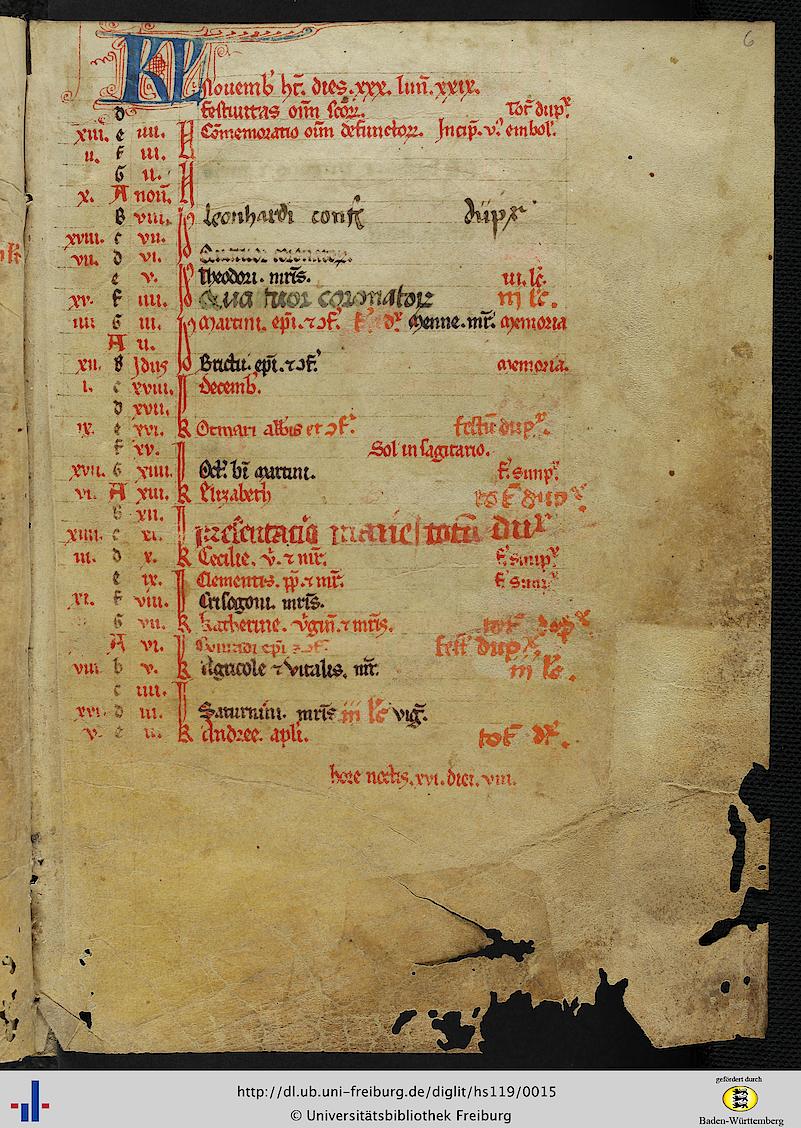 6
KL Nouemb' ht. dies .xxx. lun̄. xxix.
d festiuitas om̄ scōr. Tot dup.
xiii. e iiii. N Cōmemoratio om̄ defunctor. Incip. v. embol'.
ii. f iii. N
G ii. N
x. A non.
B viii. Id Leonhardi conf dupx
xviii. c vii. Id
vii. d vi. Id Quatuor coronator.
e v. Id Theodori. mris. iii. lc.
xv. f iiii. Id Quatuor coronator iii lc.
iiii G iii. Id Martini. epi. ⁊ cf. Menne. mr. memoria
A ii. Id
xii. B Idus Brictii. epi. ⁊ cf. memoria.
i. c xviii. K decemb.
d xvii. K
ix. e xvi. K Otmari abbis et cf. festū dup.
f xv. K Sol in sagitario.
xvii. G xiiii. K Oct. bi martini. f. simp.
vi. A xiii. K Elizabeth tot dup
B xii. K
xiiii. c xi. K presentacio marie totū dup
iii. d x. K Cecilie. v. ⁊ mr. f. simp.
e ix. K Clementis. pp. ⁊ mr. f. simp.
xi. f viii. K Crisogoni. mris.
G vii. K Katherine. v̄gin. ⁊ mris. tot dup
A vi. K Cunradi epi ⁊ cf. fest dup
viii b v. K Agricole ⁊ vitalis. mr. iii lc.
c iiii. K
xvi d iii. K Saturnini. mris iii lc vig.
v. e ii. K Andree. apli. tot dx.
hore noctis. xvi. diei. viii.
http://dl.ub.uni-freiburg.de/diglit/hs119/0015
© Universitätsbibliothek Freiburg
gefördert durch
Baden-Württemberg